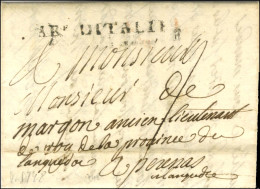 ARM. D'ITALIE
A Monsieur
Monsieur de
margon ancien lieutenant
de roy de la province du
languedoc
A pezenas